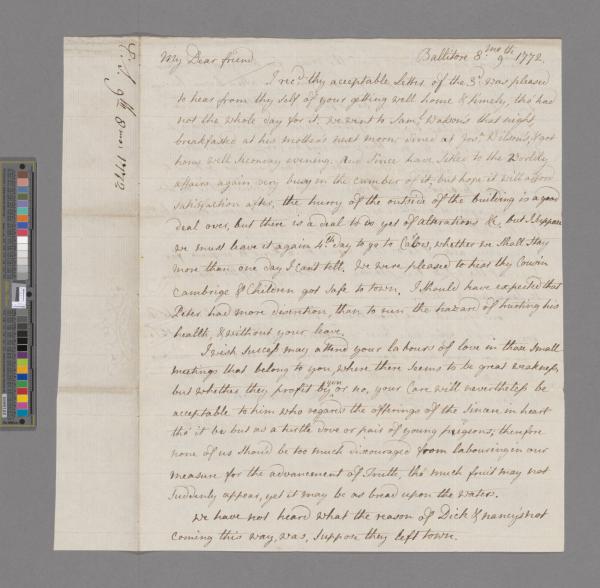 My Dear friend Ballitore 8th mo 9th 1772
I recd thy acceptable Letter of the 3d was pleased
to hear from thy self of your getting well home & timely, tho' had
not the whole day for it, we went to Saml Watson's that night,
breakfasted at his mother's next morn dined at Wilson's, & got
home well Secondy evening. And Since have Sitten to the Worldly
affairs again very busy in the cumber of it, but hope it will afford
satisfaction after, the hurry of the outside of the building is a good
deal over, but there is a deal to do yet of alterations &c, but I Suppose
we must leave it again 4th day to go to whether we Shall Stay
more than one day I can't tell. We were pleased to hear thy Cousin
Cambrige & Children got safe to town. I should have expected that
Peter had more discretion, than to run the hazard of hurting his
health, & without your leave.
I wish Success may attend your labours of love in those Small
meetings that belong to you, where there seems to be great weakness,
but whether they profit by you or no, your Care will nevertheless be
acceptable to him who regards the offerings of the Sincere in heart
tho' it be but as a turtle dove or pair of young pigeons, therefore
none of us should be too much discouraged from labouring in our
measure for the advancement of Truth, tho' much fruit may not
Suddenly appear, yet it may be as bread upon the waters.
we have not heard what the reason of Dick & nancy's not
coming this way, was, Suppose they left town.
9th 8mo: 1772